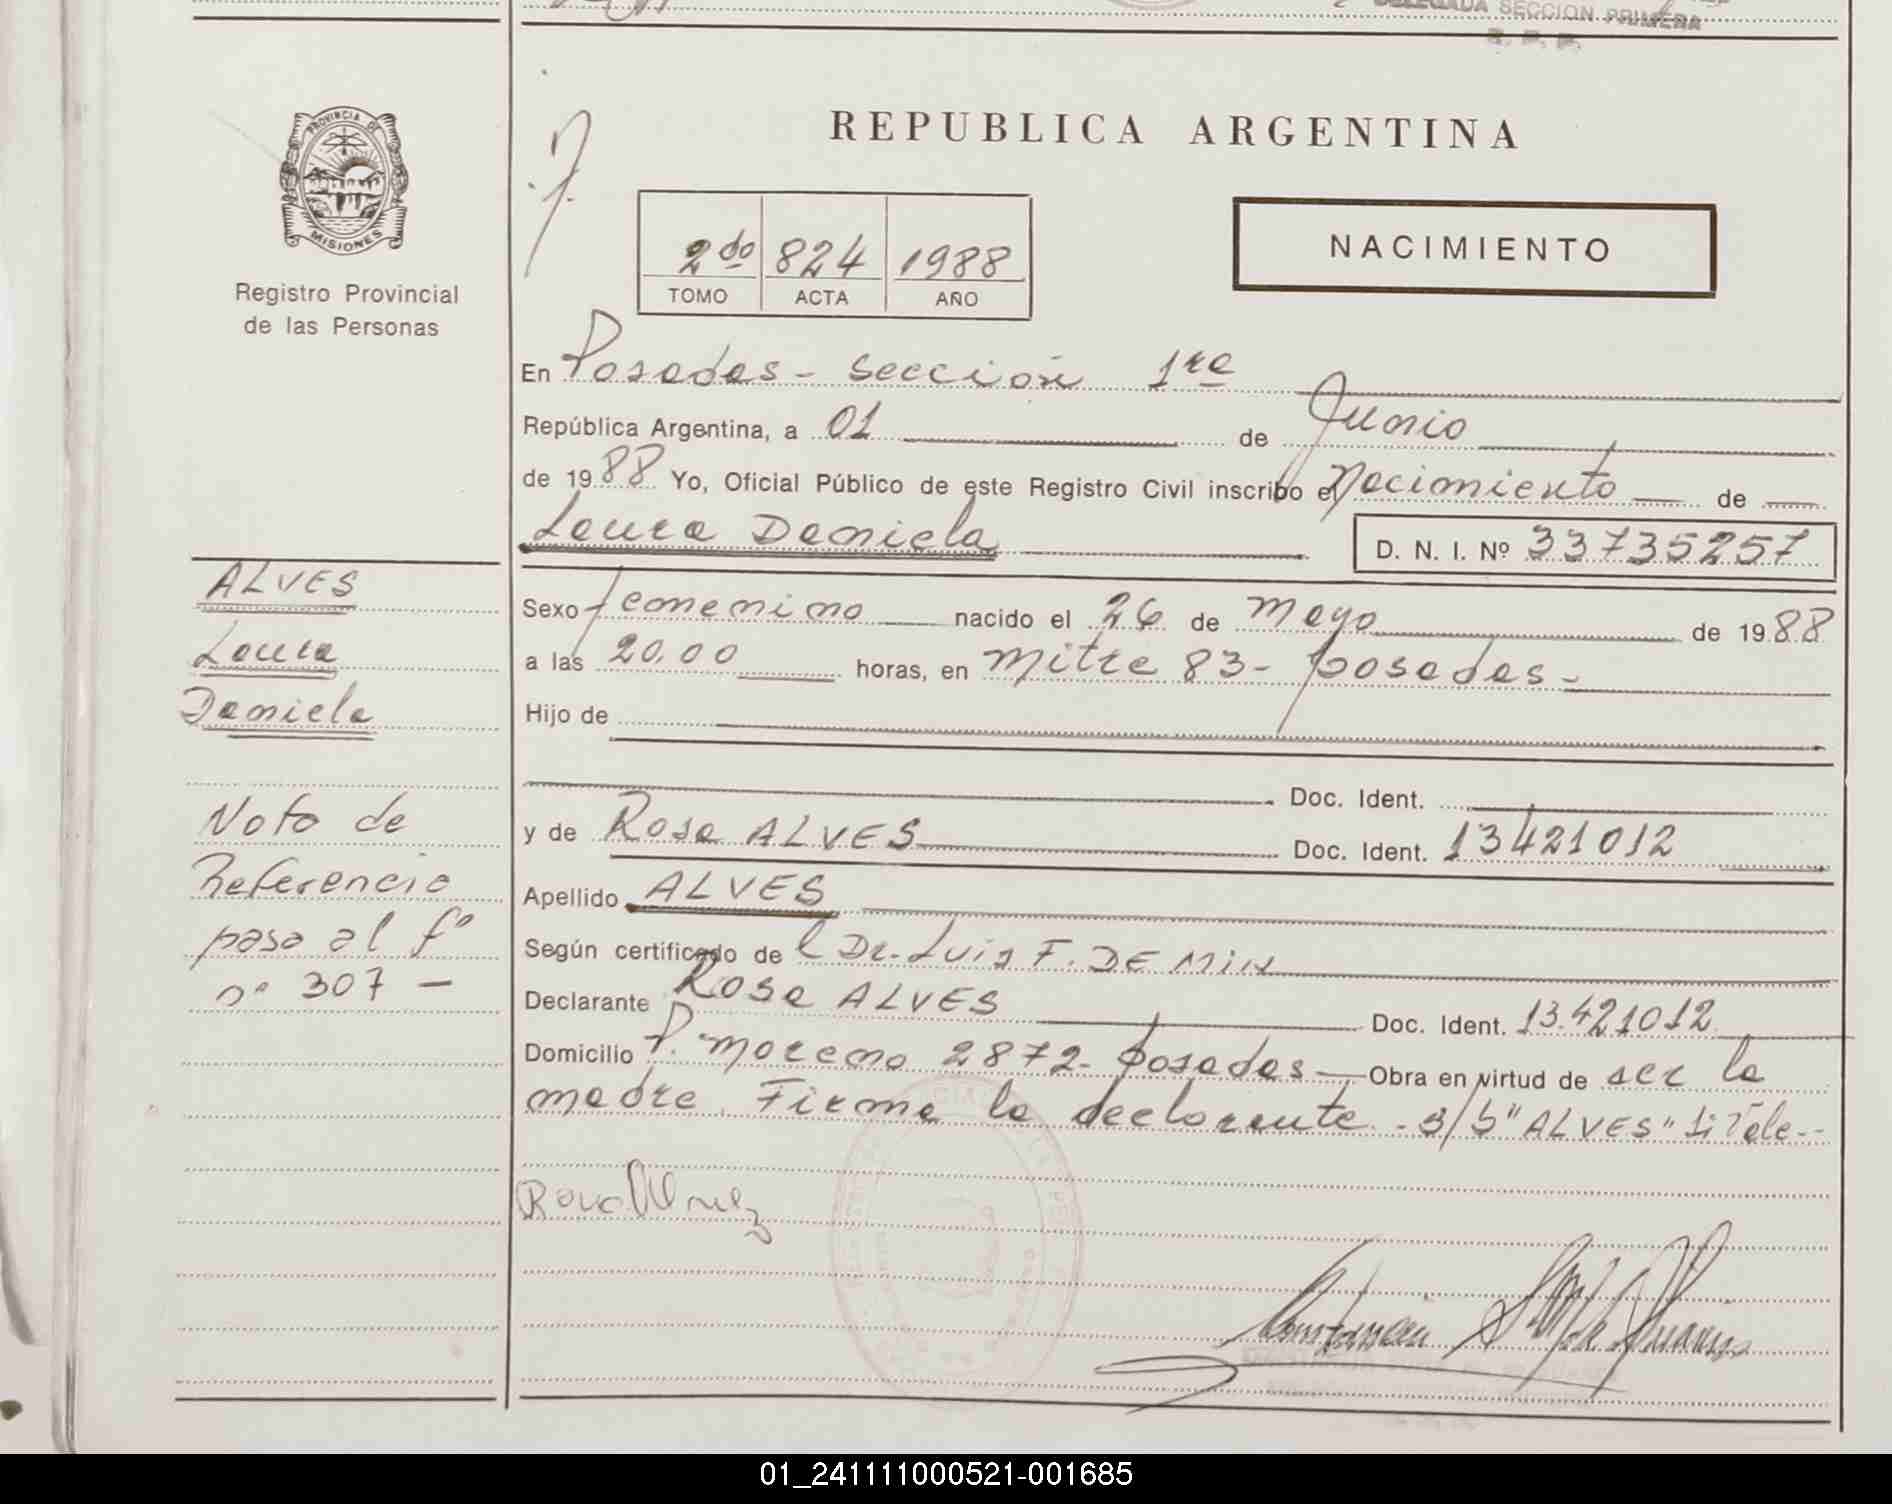 DELEGADA SECCION PRIMERA
R. P. P.
PROVINCIA DE
MISIONES
Registro Provincial
de las Personas
REPUBLICA ARGENTINA
2do 824 1988
TOMO ACTA AÑO
NACIMIENTO
En Posadas - sección 1ra
República Argentina, a 01 de Junio
de 1988 Yo, Oficial Público de este Registro Civil inscribo el Nacimiento de
Laura Daniela D. N. I. Nº 33735257
ALVES
Laura
Daniela
Sexo femenino nacido el 26 de Mayo de 1988
a las 20.00 horas, en Mitre 83 - posadas -
Hijo de
Doc. Ident.
y de Rosa ALVES Doc. Ident. 13421012
Apellido ALVES
Según certificado de l Dr. Luis F. DE MIN
Declarante Rosa ALVES Doc. Ident. 13.421012
Domicilio P. Moreno 2872 - posadas - Obra en virtud de ser la
madre. Firma la declarante - s/b "ALVES" si vale --
Nota de
Referencia
pasa al fº
nº 307 -
Rosa
01_241111000521-001685